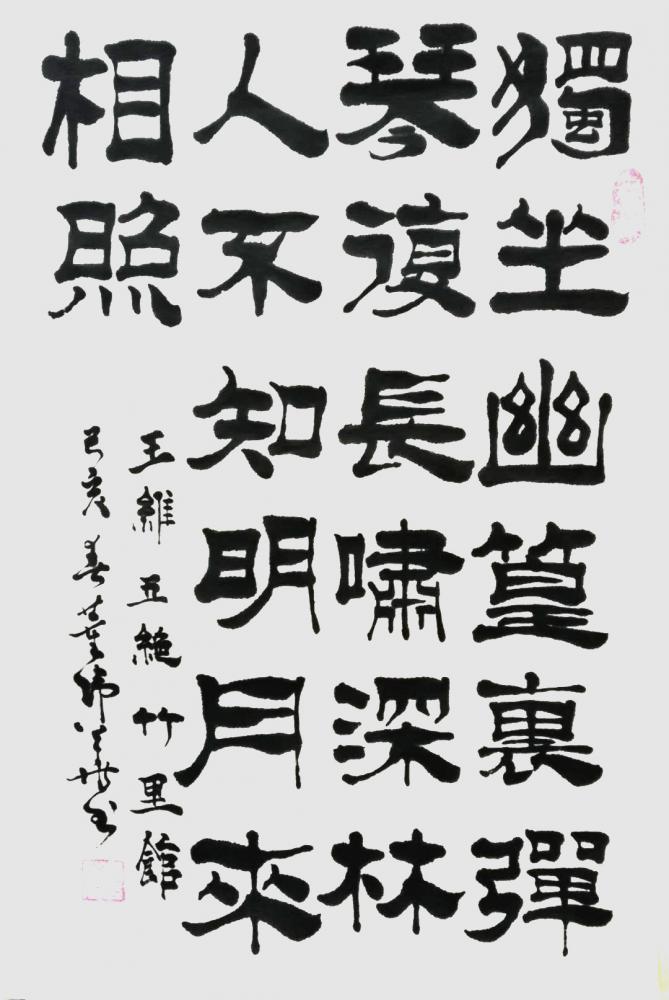 獨坐幽篁裏彈
琴復長嘯深林
人不知明月來
相照
王維五絕竹里館
己亥春董